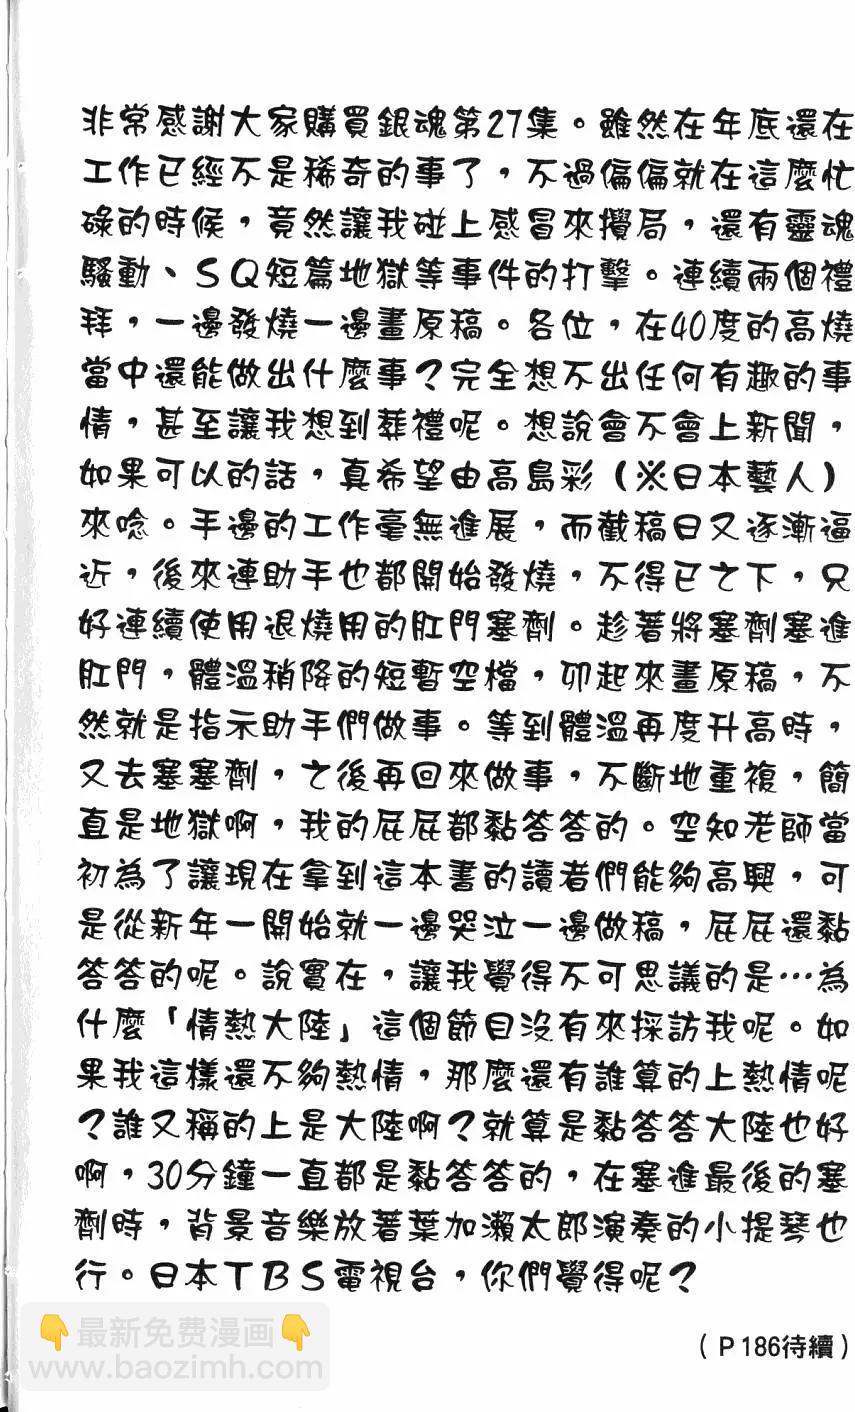 非常感謝大家購買銀魂第27集。雖然在年底還在
工作已經不是稀奇的事了，不過偏偏就在這麼忙
碌的時候，竟然讓我碰上感冒來攪局，還有靈魂
騷動、SQ短篇地獄等事件的打擊。連續兩個禮
拜，一邊發燒一邊畫原稿。各位，在40度的高燒
當中還能做出什麼事？完全想不出任何有趣的事
情，甚至讓我想到葬禮呢。想說會不會上新聞，
如果可以的話，真希望由高島彩（※日本藝人）
來唸。手邊的工作毫無進展，而截稿日又逐漸逼
近，後來連助手也都開始發燒，不得已之下，只
好連續使用退燒用的肛門塞劑。趁著將塞劑塞進
肛門，體溫稍降的短暫空檔，卯起來畫原稿，不
然就是指示助手們做事。等到體溫再度升高時，
又去塞塞劑，之後再回來做事，不斷地重複，簡
直是地獄啊，我的屁屁都黏答答的。空知老師當
初為了讓現在拿到這本書的讀者們能夠高興，可
是從新年一開始就一邊哭泣一邊做稿，屁屁還黏
答答的呢。說實在，讓我覺得不可思議的是…為
什麼「情熱大陸」這個節目沒有來採訪我呢。如
果我這樣還不夠熱情，那麼還有誰算的上熱情呢
？誰又稱的上是大陸啊？就算是黏答答大陸也好
啊，30分鐘一直都是黏答答的，在塞進最後的塞
劑時，背景音樂放著葉加瀨太郎演奏的小提琴也
行。日本TBS電視台，你們覺得呢？
（P186待續）
👇最新免费漫画👇
www.baozimh.com